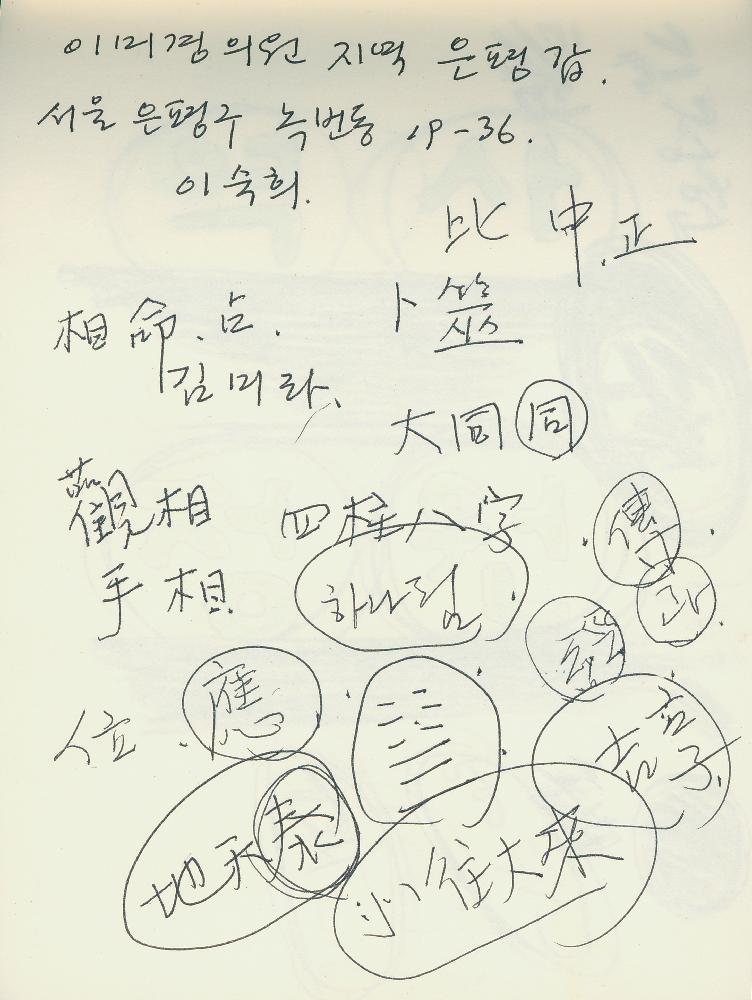 이미경 의원 지역 은평 갑.
서울 은평구 녹번동 19-36.
이숙희.
比 中.正
相 命.占.
卜筮
김미라.
大同 同
觀相 四柱八字 傳
手相 하나님
位. 應
吉亨
地天泰 小往大來